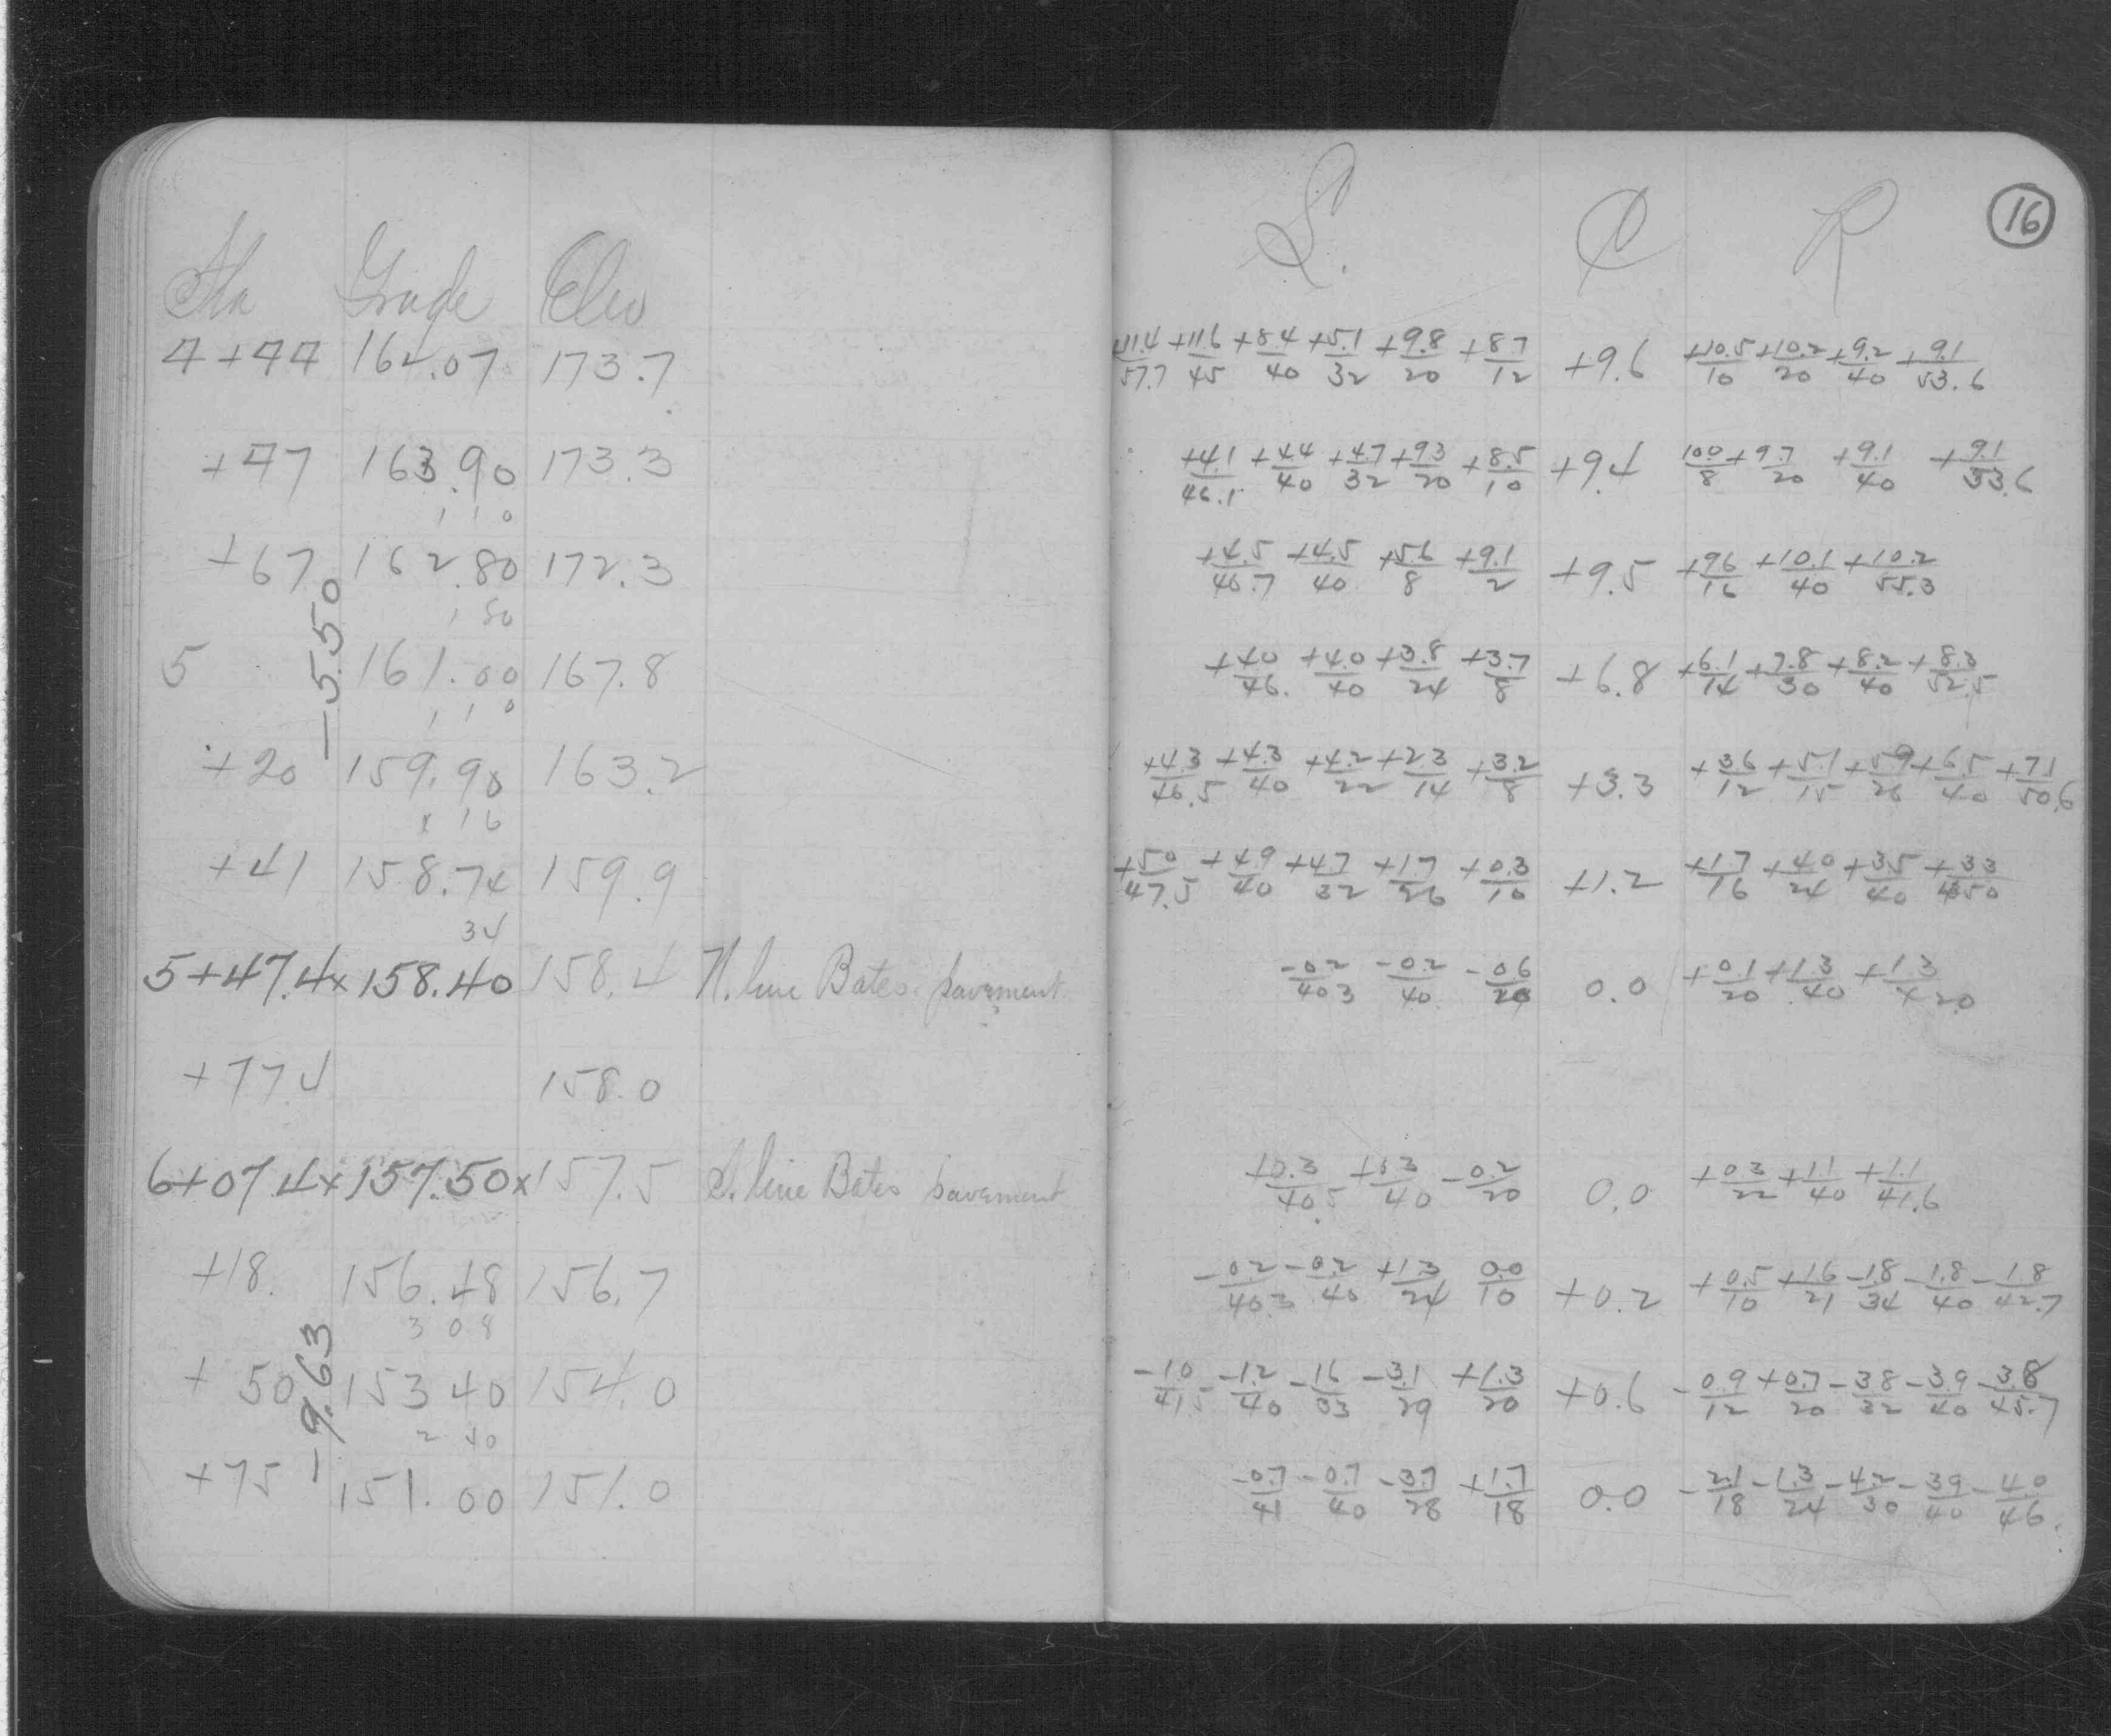 16
Sta Grade Elev L. ₵ R
4+44 164.07 173.7 +11.4/57.7 +11.6/45 +8.4/40 +5.1/32 +9.8/20 +8.7/12 +9.6 +10.5/10 +10.2/20 +9.2/40 +9.1/53.6
+47 163.90 173.3 +4.1/46.1 +4.4/40 +4.7/32 +9.3/20 +8.5/10 +9.4 10.0/8 +9.7/20 +9.1/40 +9.1/53.6
1 1 0
+67 162.80 172.3 +4.5/46.7 +4.5/40 +5.6/8 +9.1/2 +9.5 +9.6/16 +10.1/40 +10.2/55.3
1 80
-5.50
5 161.00 167.8 +4.0/46. +4.0/40 +3.8/24 +3.7/8 +6.8 +6.1/14 +7.8/30 +8.2/40 +8.3/52.5
1 1 0
+20 159.90 163.2 +4.3/46.5 +4.3/40 +4.2/22 +2.3/14 +3.2/8 +3.3 +3.6/12 +5.1/15 +5.9/26 +6.5/40 +7.1/50.6
1 16
+41 158.74 159.9 +5.0/47.5 +4.9/40 +4.7/32 +1.7/26 +0.3/10 +1.2 +1.7/16 +4.0/24 +3.5/40 +3.3/50
34
5+47.4x 158.40 158.4 N. line Bates pavement -0.2/40.3 -0.2/40 -0.6/20 0.0 +0.1/20 +1.3/40 +1.3
+77.4 158.0
6+07.4x 157.50x 157.5 S. line Bates pavement +0.3/40.5 +0.3/40 -0.2/20 0.0 +0.3/22 +1.1/40 +1.1/41.6
+18. 156.48 156.7 -0.2/40.3 -0.2/40 +1.3/24 0.0/10 +0.2 +0.5/10 +1.6/21 -1.8/34 -1.8/40 -1.8/42.7
3 08
-9.63
+50 153 40 154.0 -1.0/41.5 -1.2/40 -1.6/33 -3.1/29 +1.3/20 +0.6 -0.9/12 +0.7/20 -3.8/32 -3.9/40 -3.8/45.7
2 40
+75 151.00 151.0 -0.7/41 -0.7/40 -3.7/28 +1.7/18 0.0 -2.1/18 -1.3/24 -4.2/30 -3.9/40 -4.0/46.